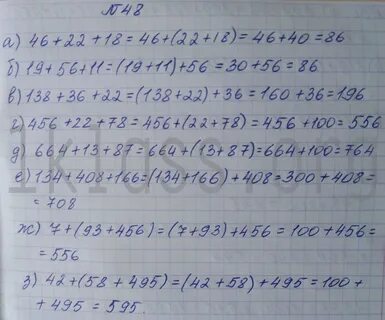 №48
а) 46+22+18=46+(22+18)=46+40=86
б) 19+56+11=(19+11)+56=30+56=86
в) 138+36+22=(138+22)+36=160+36=196
г) 456+22+78=456+(22+78)=456+100=556
д) 664+13+87=664+(13+87)=664+100=764
е) 134+408+166=(134+166)+408=300+408=
=708
ж) 7+(93+456)=(7+93)+456=100+456=
=556
з) 42+(58+495)=(42+58)+495=100+
+495=595.